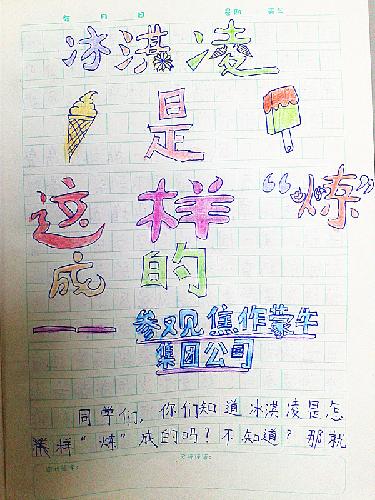 年 月 日 星期 第
冰淇凌
是
这样“炼”
成的
——参观焦作蒙牛
集团公司
同学们，你们知道冰淇凌是怎
样“炼”成的吗？不知道？那就